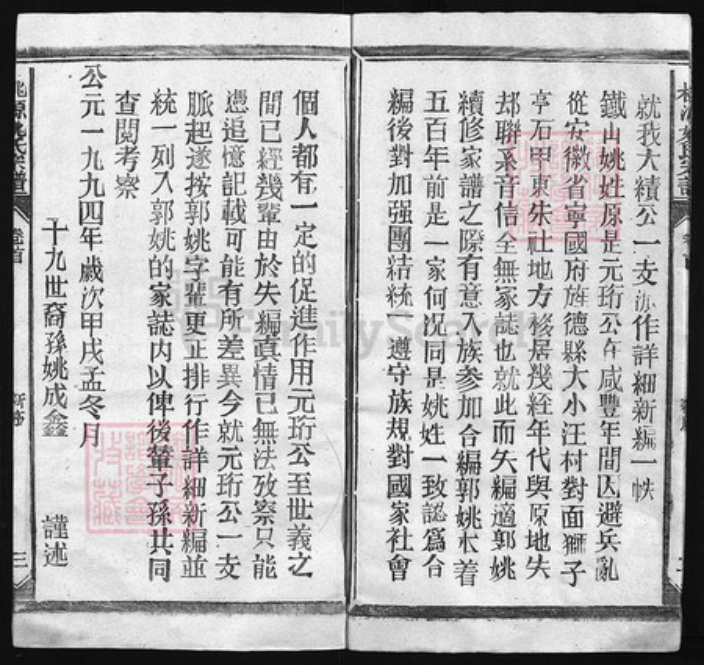 就我大績公一支亦作詳細新編一帙
鐵山姚姓原是元珩公在咸豐年間因避兵亂
從安徽省寧國府旌德縣大小汪村對面獅子
亭石甲東朱社地方移居幾經年代與原地失
却聯系音信全無家誌也就此而失編適郭姚
續修家譜之際有意入族參加合編郭姚本着
五百年前是一家何况同是姚姓一致認爲合
編後對加强團結統一遵守族規對國家社會
個人都有一定的促進作用元珩公至世義之
間已經幾輩由於失編真情已無法攷察只能
憑追憶記載可能有所差異今就元珩公一支
脈起遂按郭姚字輩更正排行作詳細新編並
統一列入郭姚的家誌内以俾後輩子孫共同
查閲考察
公元一九九四年歲次甲戌孟冬月
十九世裔孫姚成鑫 謹述
姚氏宗譜
卷首
新序
三
FamilySearch